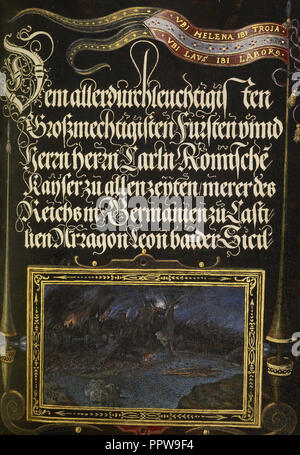 VBI HELENA IBI TROIA.
VBI LAVS IBI LABOR
Dem allerdurchleuchtigisten
Großmechtigisten Fursten vnnd
Herrn herrn Carln Römischē
Kayser zu allen zeyten merer des
Reichs in Germanien zu Casti
lien Arragon Leon baider Sicil
alamy
PPW9F4